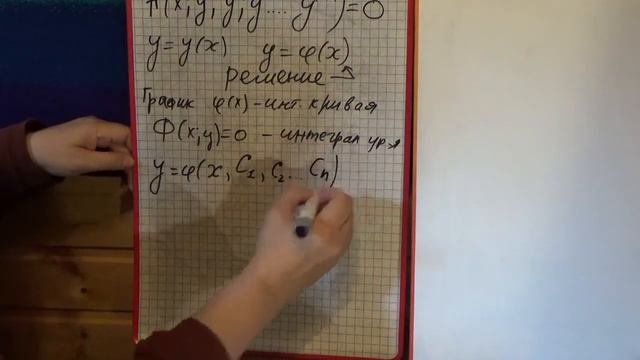 F(x, y, y', y'' .... y ) = 0
y = y(x) y = φ(x)
решение
График φ(x) - инт. кривая
Φ(x, y) = 0 - интеграл ур-я
y = φ(x, C₁, C₂ ... Cₙ)